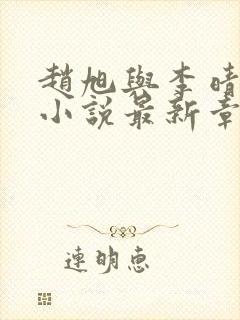 趙旭與李晴
小說最新章
連明惠